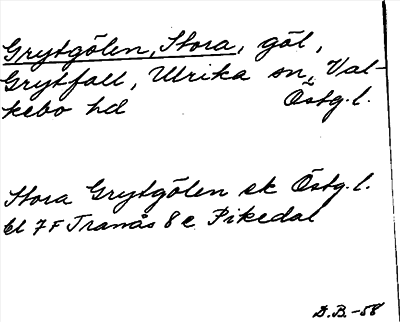 Grytgölen, Stora, göl,
Grytfall, Ulrika sn, Val-
kebo hd Östg.l.
Stora Grytgölen ek Östg.l.
bl 7F Tranås 8e Pikedal
D.B.-58